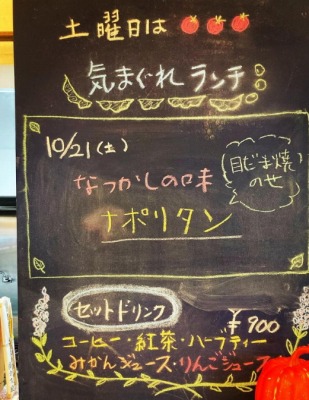 土曜日は
気まぐれランチ
10/21(土)
なつかしの味
ナポリタン
目だま焼
のせ
セットドリンク
¥900
コーヒー・紅茶・ハーブティー
みかんジュース・りんごジュース